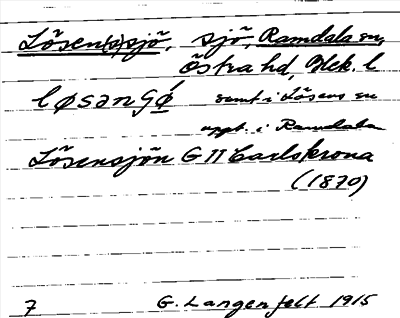 Lösen(s)sjö, sjö, Ramdala sn,
Östra hd, Blek. l
løsənʃǿ samt i Lösens sn
uppt. i Ramdala sn
Lösensjön G II Carlskrona
(1870)
7 G. Langenfelt 1915